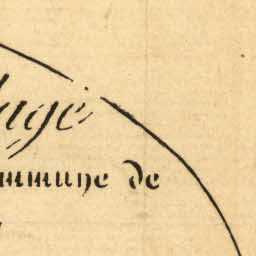 lage
mmune de